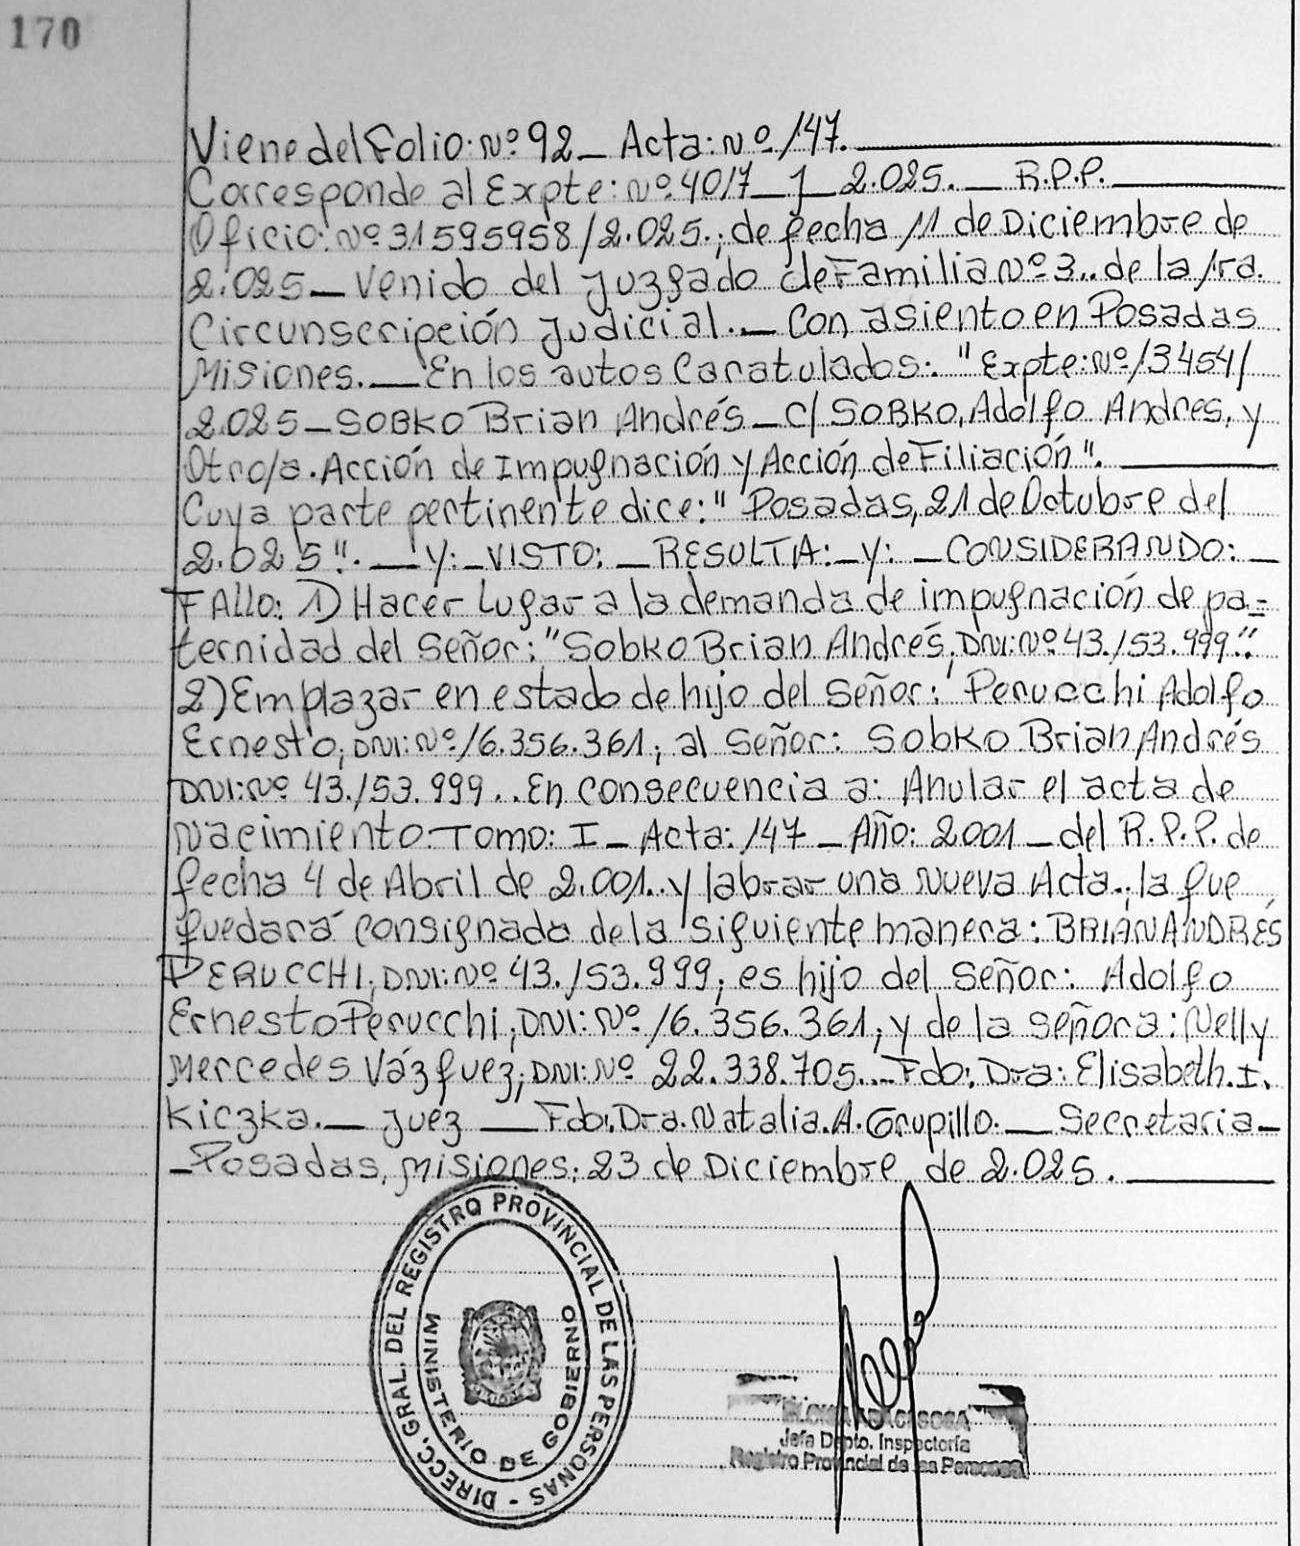 170
Viene del Folio: Nº 92_ Acta: Nº 147.
Corresponde al Expte: Nº 4017_ J_ 2.025._ R.P.P.
Oficio: Nº 31595958/2.025.; de fecha 11 de Diciembre de
2.025_ Venido del Juzgado de Familia Nº 3.. de la 1ra.
Circunscripción Judicial._ Con asiento en Posadas
Misiones._ En los autos Caratulados: "Expte: Nº 13454/
2.025_ SOBKO Brian Andrés_ C/ SOBKO, Adolfo Andres, y
Otro/a. Acción de Impugnación y Acción de Filiación".
Cuya parte pertinente dice: "Posadas, 21 de Octubre del
2.025"._ Y:_ VISTO:_ RESULTA:_ y:_ CONSIDERANDO:_
FAllo: 1) Hacer Lugar a la demanda de impugnación de pa=
ternidad del Señor: "Sobko Brian Andrés, DNI: Nº 43.153.999".
2) Emplazar en estado de hijo del Señor: Perucchi Adolfo
Ernesto, DNI: Nº 16.356.361, al Señor: Sobko Brian Andrés
DNI: Nº 43.153.999.. En consecuencia a: Anular el acta de
Nacimiento. Tomo: I_ Acta: 147_ Año: 2001_ del R.P.P. de
fecha 4 de Abril de 2.001.. y labrar una Nueva Acta.; la que
quedará consignada de la siguiente manera: BRIAN ANDRÉS
PERUCCHI, DNI: Nº 43.153.999; es hijo del Señor: Adolfo
Ernesto Perucchi, DNI: Nº 16.356.361, y de la señora: Nelly
Mercedes Vázquez, DNI: Nº 22.338.705._ Fdo: Dra: Elisabeth. I.
Kiczka._ Juez_ Fdo: Dra. Natalia. A. Grupillo._ Secretaria_
_Posadas, Misiones; 23 de Diciembre de 2.025.
DIRECC. GRAL. DEL REGISTRO PROVINCIAL DE LAS PERSONAS -
MINISTERIO DE GOBIERNO
Jefa Dpto. Inspectoría
Registro Provincial de las Personas